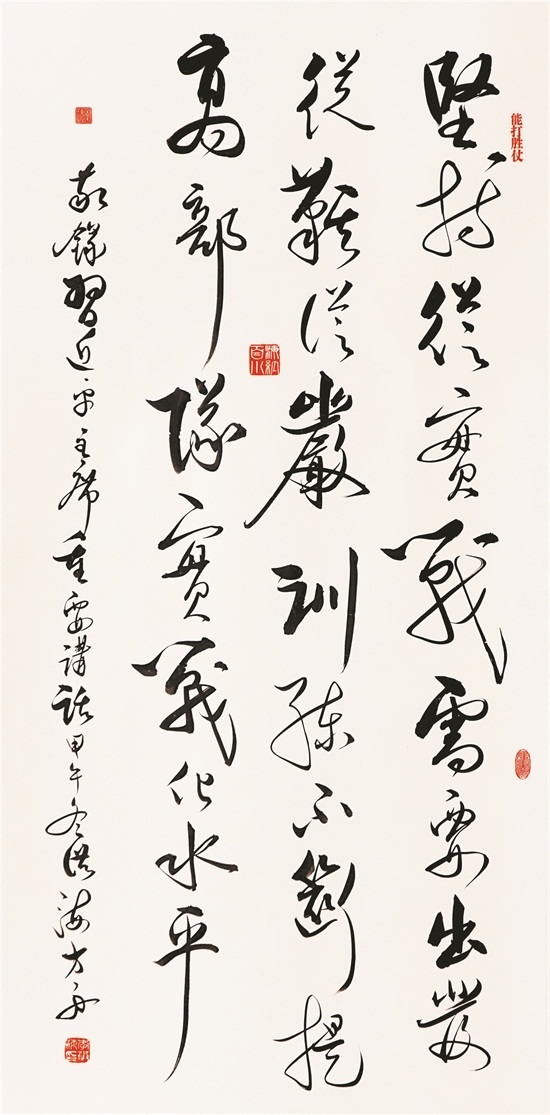 能打胜仗
堅持從實戰需要出發
從難從嚴訓練不斷提
高部隊實戰化水平
敬錄習近平主席重要講話甲午冬洪海方舟